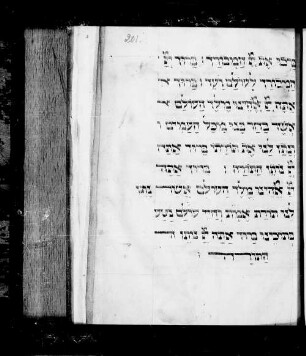 201.
ברכו את ה המבורך ברוך ה
המבורך לעולם ועד ברוך א
אתה ה אלהינו מלך העולם א
אשר בחר בנו מכל העמים ו
ונתן לנו את תורתו ברוך אתה
ה נותן התורה ברוך אתה
ה אלהינו מלך העולם אשר נתן
לנו תורת אמת וחיי עולם נטע
בתוכינו ברוך אתה ה נותן ה
התורה